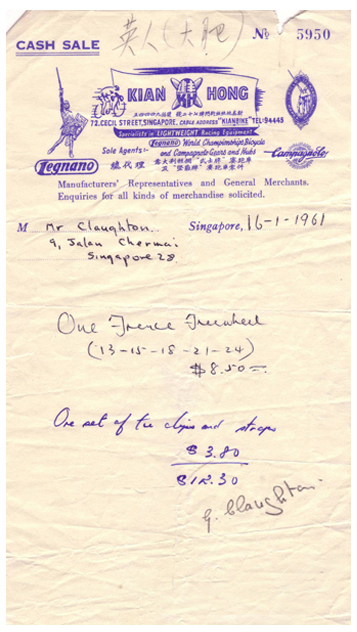 英人(大肥)
CASH SALE
No 5950
KIAN HONG
72, CECIL STREET, SINGAPORE. CABLE ADDRESS "KIANBIKE" TEL: 94445
Specialists in LIGHTWEIGHT Racing Equipment
Sole Agents:- Legnano World Championships Bicycle
and Campagnolo Gears and Hubs
Legnano
總代理
Campagnolo
Manufacturers' Representatives and General Merchants.
Enquiries for all kinds of merchandise solicited.
M Mr Claughton
Singapore, 16-1-1961
9, Jalan Chermai
Singapore 28
One Freewheel
(13-15-18-21-24)
$8.50
One set of toe clips and straps
$3.80
$12.30
G. Claughton